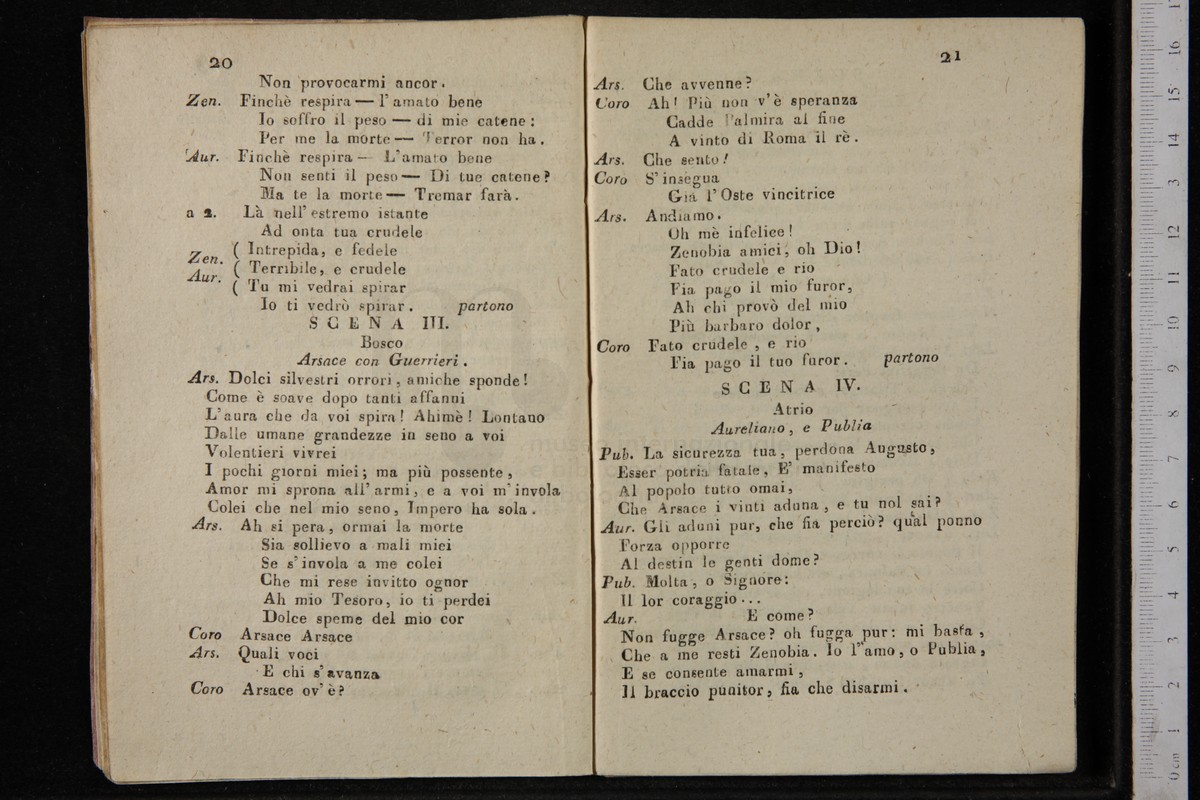 20
Non provocarmi ancor.
Zen. Finchè respira — l'amato bene
Io soffro il peso — di mie catene:
Per me la morte — Terror non ha.
Aur. Finchè respira — L'amato bene
Non senti il peso — Di tue catene?
Ma te la morte — Tremar farà.
a 2. Là nell'estremo istante
Ad onta tua crudele
Zen. ( Intrepida, e fedele
Aur. ( Terribile, e crudele
( Tu mi vedrai spirar
Io ti vedrò spirar. partono
SCENA III.
Bosco
Arsace con Guerrieri.
Ars. Dolci silvestri orrori, amiche sponde!
Come è soave dopo tanti affanni
L'aura che da voi spira! Ahimè! Lontano
Dalle umane grandezze in seno a voi
Volentieri vivrei
I pochi giorni miei; ma più possente,
Amor mi sprona all'armi, e a voi m'invola
Colei che nel mio seno, Impero ha sola.
Ars. Ah si pera, ormai la morte
Sia sollievo a mali miei
Se s'invola a me colei
Che mi rese invitto ognor
Ah mio Tesoro, io ti perdei
Dolce speme del mio cor
Coro Arsace Arsace
Ars. Quali voci
E chi s'avanza
Coro Arsace ov'è?
21
Ars. Che avvenne?
Coro Ah! Più non v'è speranza
Cadde Palmira al fine
A vinto di Roma il rè.
Ars. Che sento!
Coro S'insegua
Già l'Oste vincitrice
Ars. Andiamo.
Oh mè infelice!
Zenobia amici, oh Dio!
Fato crudele e rio
Fia pago il mio furor,
Ah chi provò del mio
Più barbaro dolor,
Coro Fato crudele, e rio
Fia pago il tuo furor. partono
SCENA IV.
Atrio
Aureliano, e Publia
Pub. La sicurezza tua, perdona Augusto,
Esser potria fatale, E' manifesto
Al popolo tutto omai,
Che Arsace i vinti aduna, e tu nol sai?
Aur. Gli aduni pur, che fia perciò? qual ponno
Forza opporre
Al destin le genti dome?
Pub. Molta, o Signore:
Il lor coraggio...
Aur. E come?
Non fugge Arsace? oh fugga pur: mi basta,
Che a me resti Zenobia. Io l'amo, o Publia,
E se consente amarmi,
Il braccio punitor, fia che disarmi.